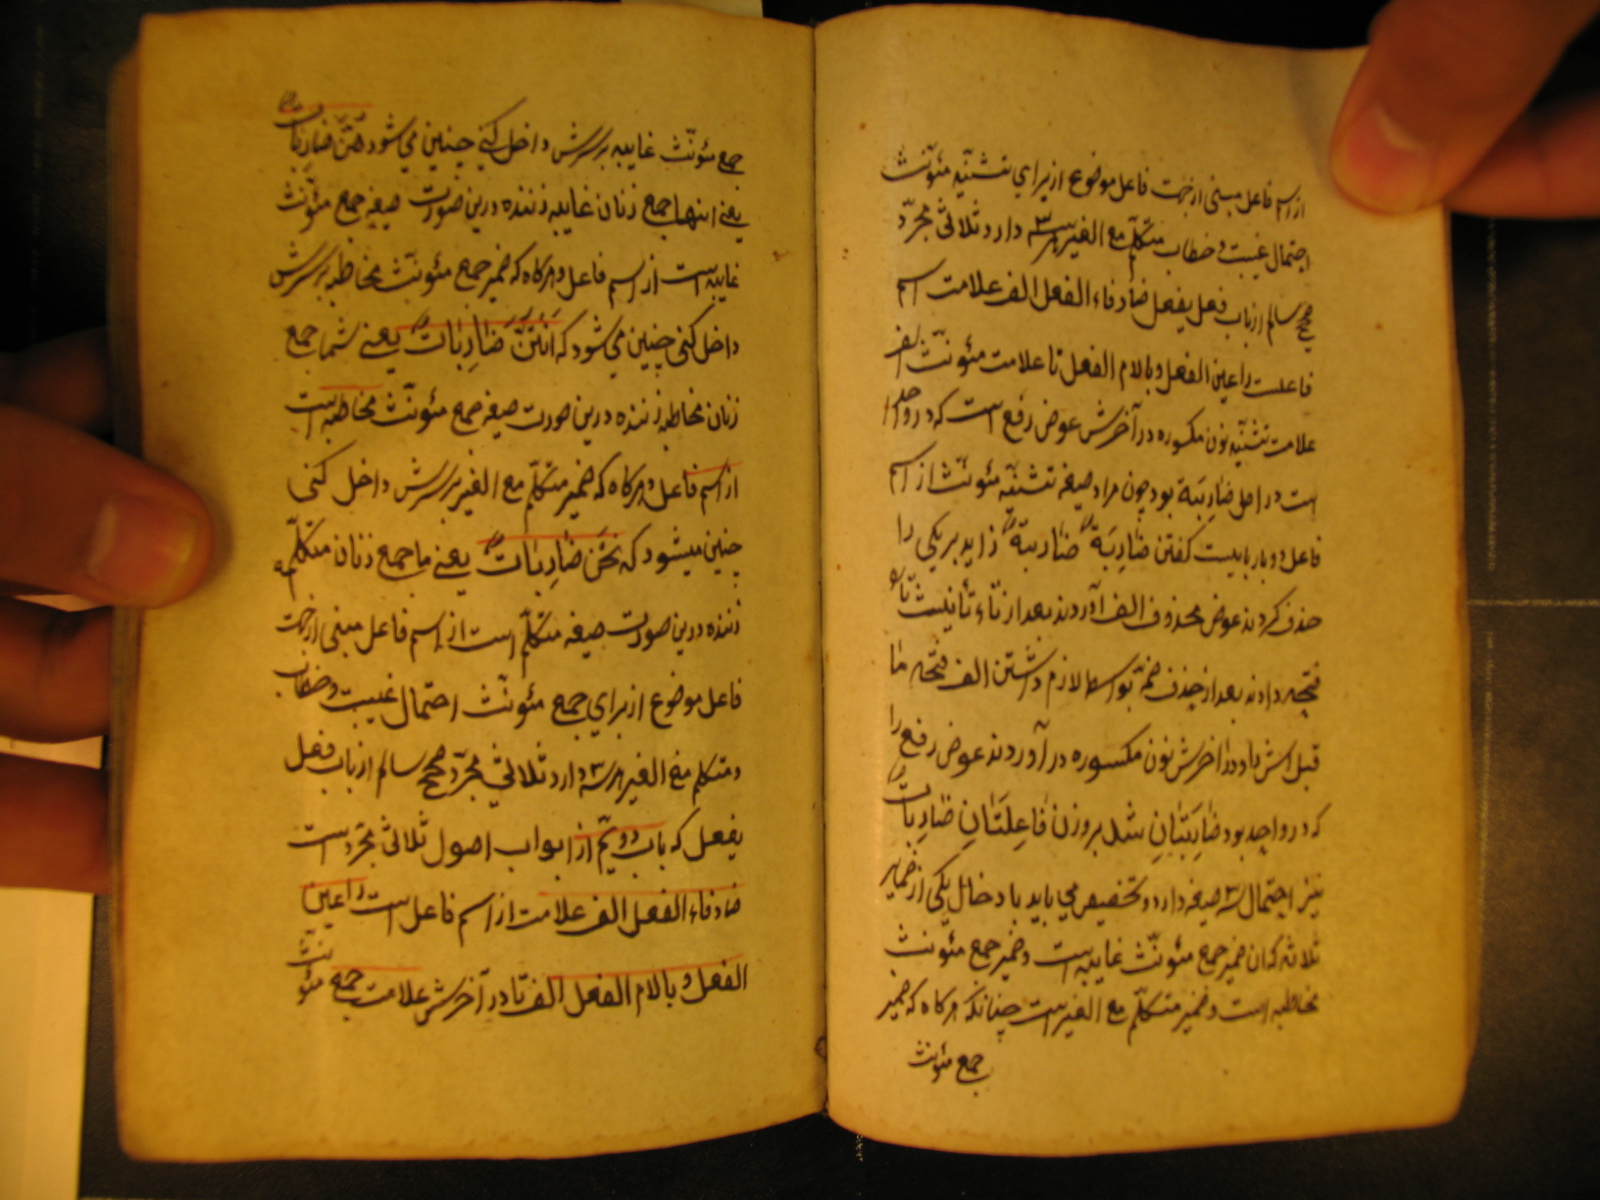 از اسم فاعل مبنی از جهت فاعل موضوع از برای تثنیه مئونث
احتمال غیبت و خطاب متکلم مع الغیر هر سه دارد ثلاثی مجرد
صحیح سالم از باب فعل یفعل ضاد فاء الفعل الف علامت اسم
فاعلست را عین الفعل و با لام الفعل تا علامت مئونث الف
علامت تثنیه نون مکسوره در آخرش عوض رفع است که در واحد
است در اصل ضاربة بود چون مراد صیغه تثنیه مئونث از اسم
فاعل دو بار بایست گفتن ضاربة ضاربة زاید بر یکی را
حذف کردند عوض محذوف الف آوردند بعد از تاء تانیث تا را
فتحه دادند بعد از حذف ضمه بواسطه لازم داشتن الف فتحه ما
قبلش باد در آخرش نون مکسوره در آوردند عوض رفع را
که در واحد بود ضاربتان شد بر وزن فاعلتان ضاربات
نیز احتمال سه صیغه دارد و تخصیص می باید با دخال یکی از ضمایر
ثلاثه که آن ضمیر جمع مئونث غایبه است و ضمیر جمع مئونث
مخاطبه است و ضمیر متکلم مع الغیر است چنانکه هر گاه که ضمیر
جمع مئونث
جمع مئونث غایبه بر سرش داخل کنی چنین می شود هن ضاربات
یعنی اینها جمع زنان غایبه زننده درین صورت صیغه جمع مئونث
غایبه است از اسم فاعل و هر گاه که ضمیر جمع مئونث مخاطبه بر سرش
داخل کنی چنین می شود که انتن ضاربات یعنی شما جمع
زنان مخاطبه زننده درین صورت صیغه جمع مئونث مخاطبه است
از اسم فاعل و هر گاه که ضمیر متکلم مع الغیر بر سرش داخل کنی
چنین میشود که نحن ضاربات یعنی ما جمع زنان متکلمه
زننده درین صورت صیغه متکلم است از اسم فاعل مبنی از جهت
فاعل موضوع از برای جمع مئونث احتمال غیبت و خطاب
و متکلم مع الغیر هر سه دارد ثلاثی مجرد صحیح سالم از باب فعل
یفعل که باب دویم از ابواب اصول ثلاثی مجرد است
ضاد فاء الفعل الف علامت از اسم فاعل است را عین
الفعل و با لام الفعل الف تا در آخرش علامت جمع مئونث